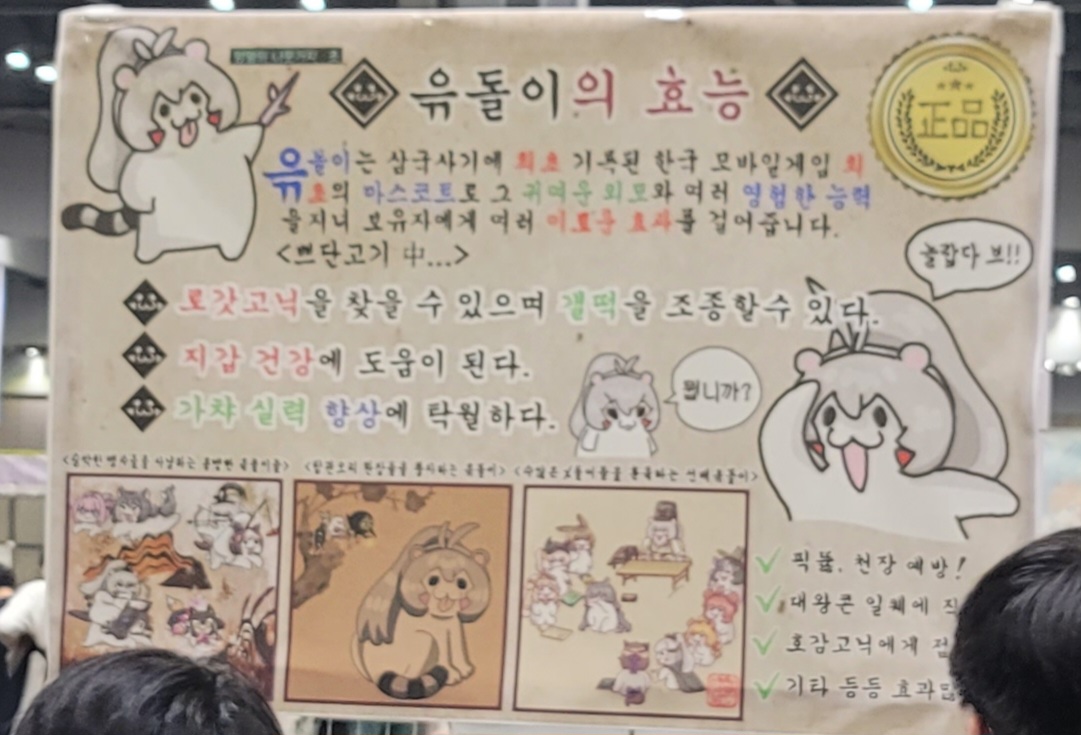 유돌이의 효능
正品
유돌이는 삼국사기에 최초 기록된 한국 모바일게임 최
초의 마스코트로 그 귀여운 외모와 여러 영험한 능력
을지니 보유자에게 여러 이로운 효과를 걸어줍니다.
<쁘단고기 中...>
놀랍다 브!!
로갓고닉을 찾을 수 있으며 갤떡을 조종할수 있다.
지갑 건강에 도움이 된다.
뭡니까?
가챠 실력 향상에 탁월하다.
픽뚫, 천장 예방!
대왕콘 일퀘에
호감고닉에게
기타 등등 효과